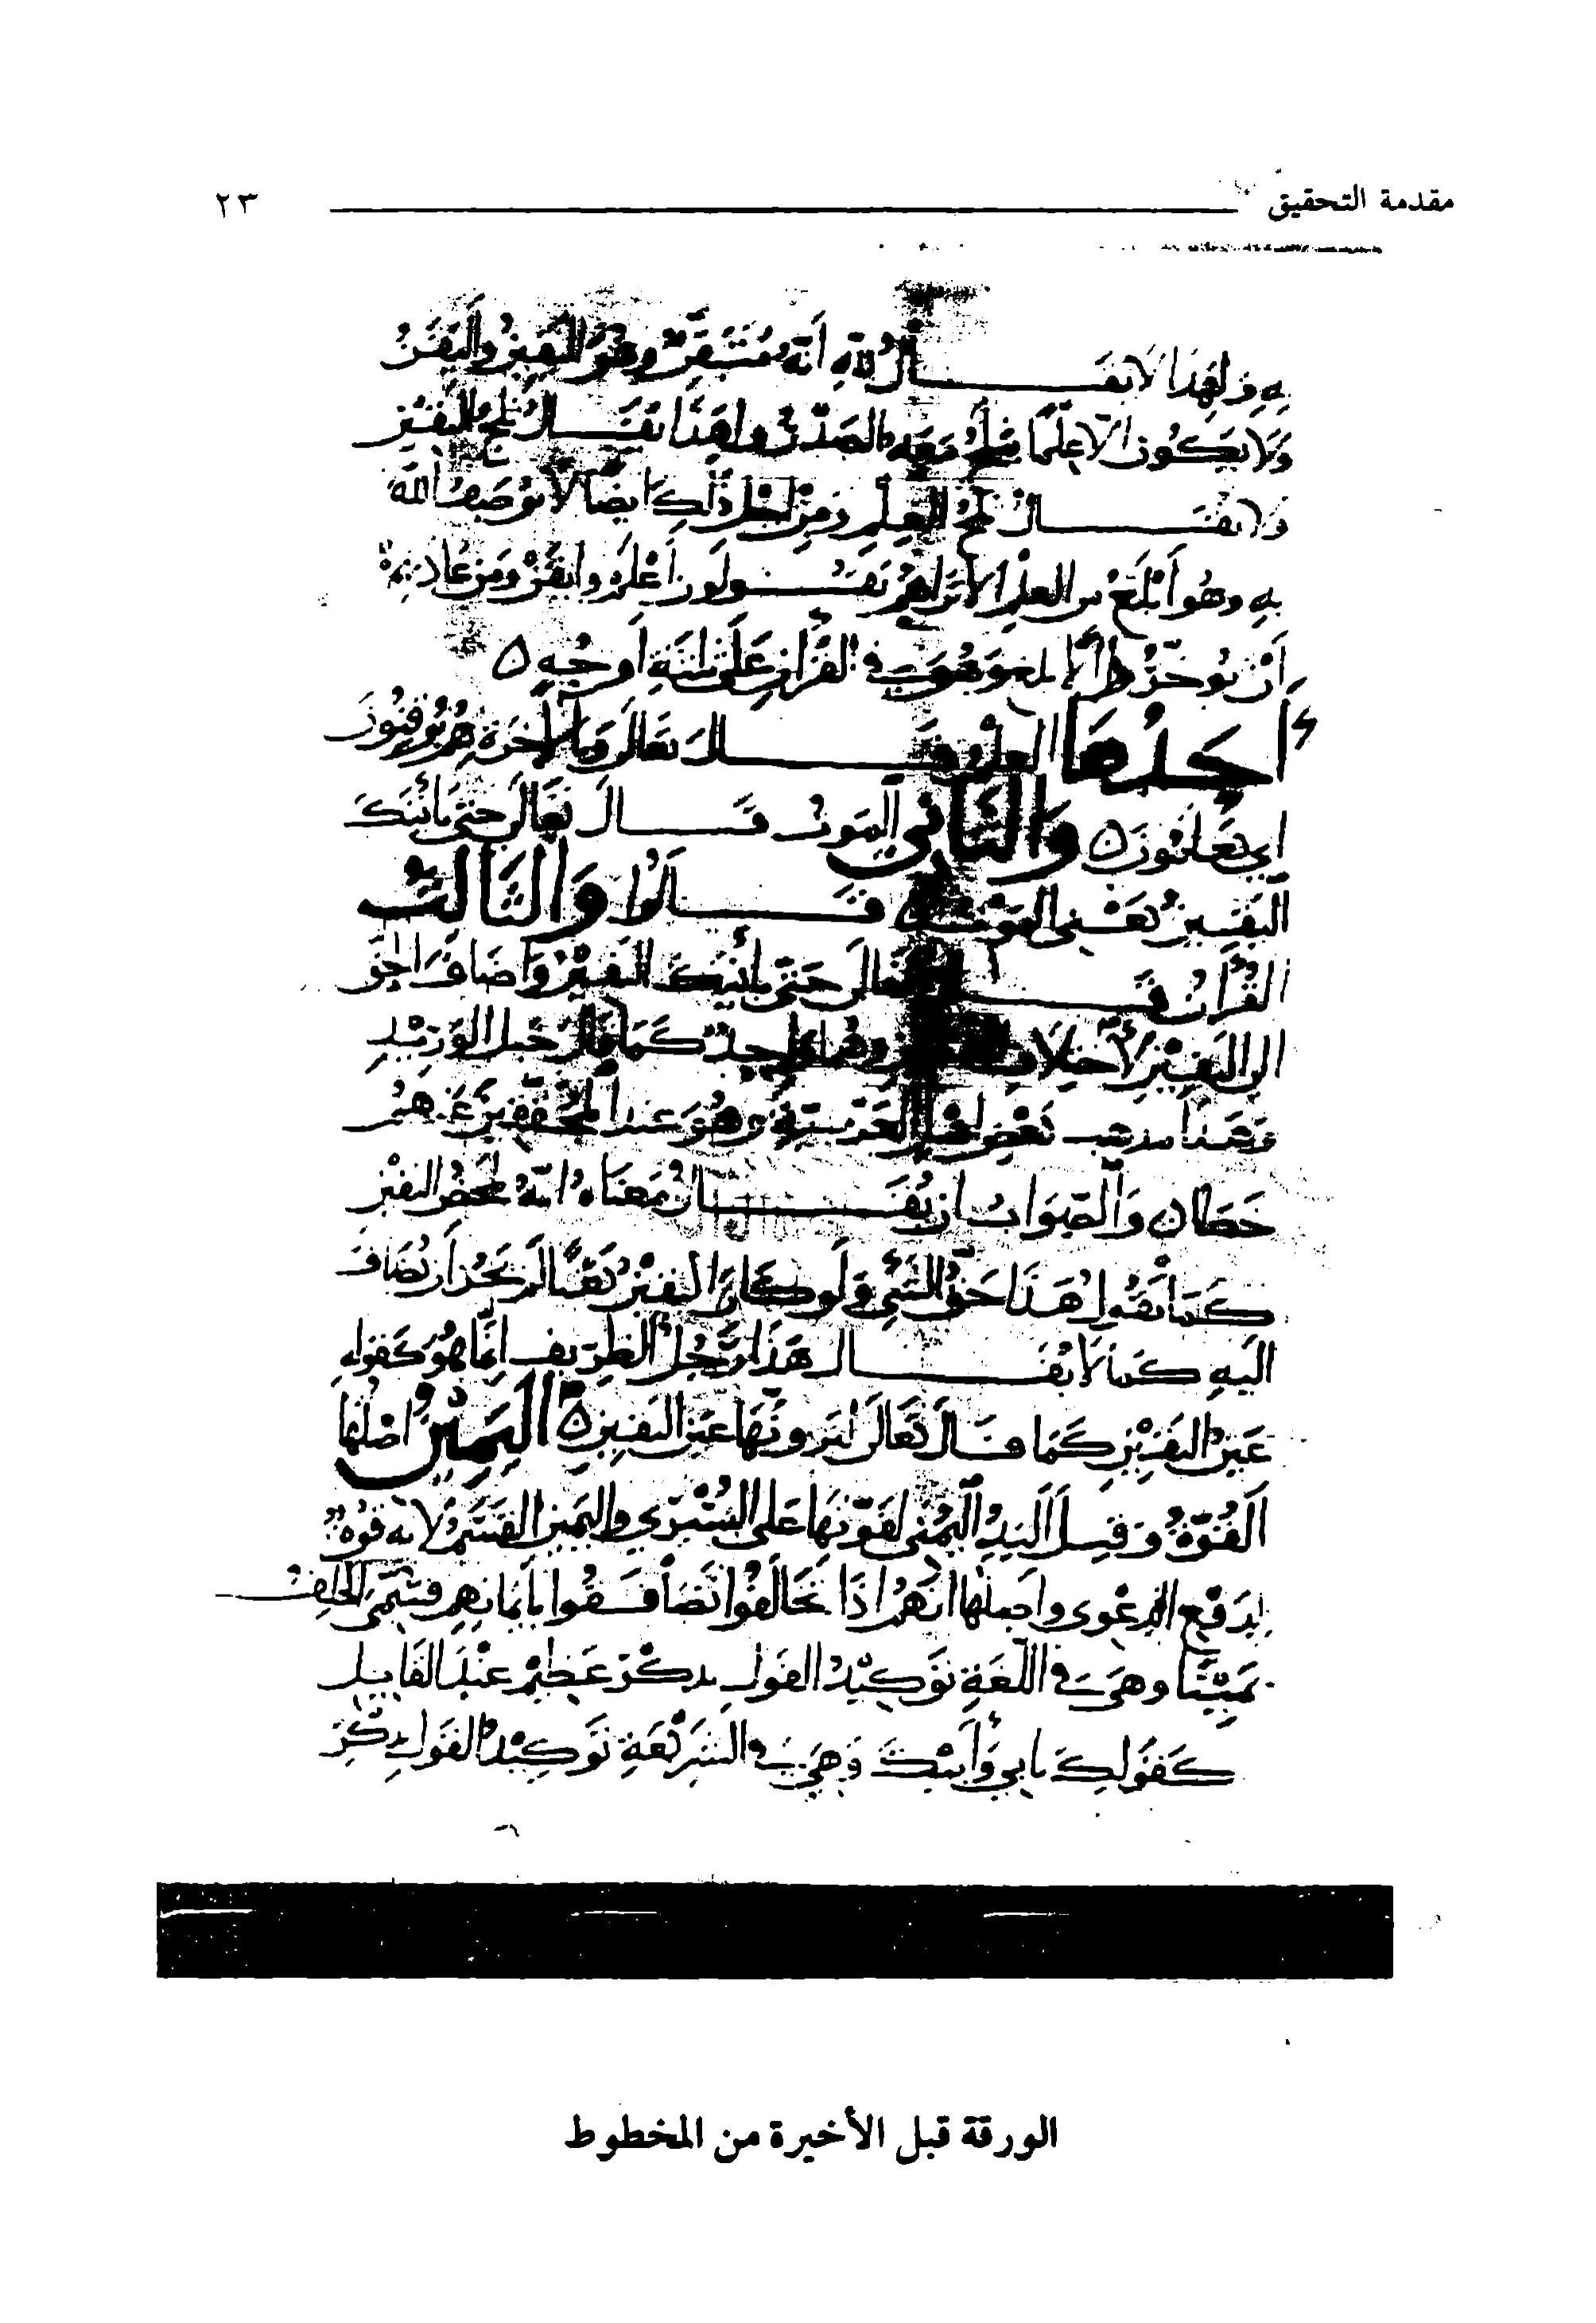 مقدمة التحقيق ٢٣
به ولهذا لا يقال لله انه متيقن وهو اليقين واليقن
ولا يكون الا علما يثلج معه الصدر ولهذا يقال ثلج اليقين
ولا يقال ثلج العلم ومن اجل ذلك ايضا لا يوصف الله
به وهو أبلغ من العلم الا تراهم يقولون أعلم وايقن ومن عادتهم
أن يؤخر وهو في القرآن على ثلثة اوجه
احدها العلم قال تعالى وبالآخرة هم يوقنون
اي يعلمون والثاني الموت قال تعالى حتى يأتيك
اليقين يعني الموت قالوا والثالث
القرآن قال تعالى حتى يأتيك اليقين واضاف الحق
الى اليقين لاختلاف وهما واحد كما قال حبل الوريد
وهذا مذهب بعض اهل العربية وهو عند المحققين غيرهم
خطا والصواب ان يقال معناه انه محض اليقين
كما تقول هذا حق الشيء ولو كان اليقين نعتا لم يجز ان يضاف
اليه كما لا يقال هذا رجل الظريف انما هو كقوله
عين اليقين كما قال تعالى لترونها عين اليقين اليمين اصلها
القوة وقيل اليد اليمنى لقوتها على اليسرى واليمين القسم لانه قوة
لدفع الدعوى واصلها انهم اذا تحالفوا تصافقوا بأيمانهم فسمي الحلف
يمينا وهي في اللغة توكيد القول بذكر عظيم عند القايل
كقولك بأبي وأبيك وهي في الشريعة توكيد القول بذكر
الورقة قبل الأخيرة من المخطوط